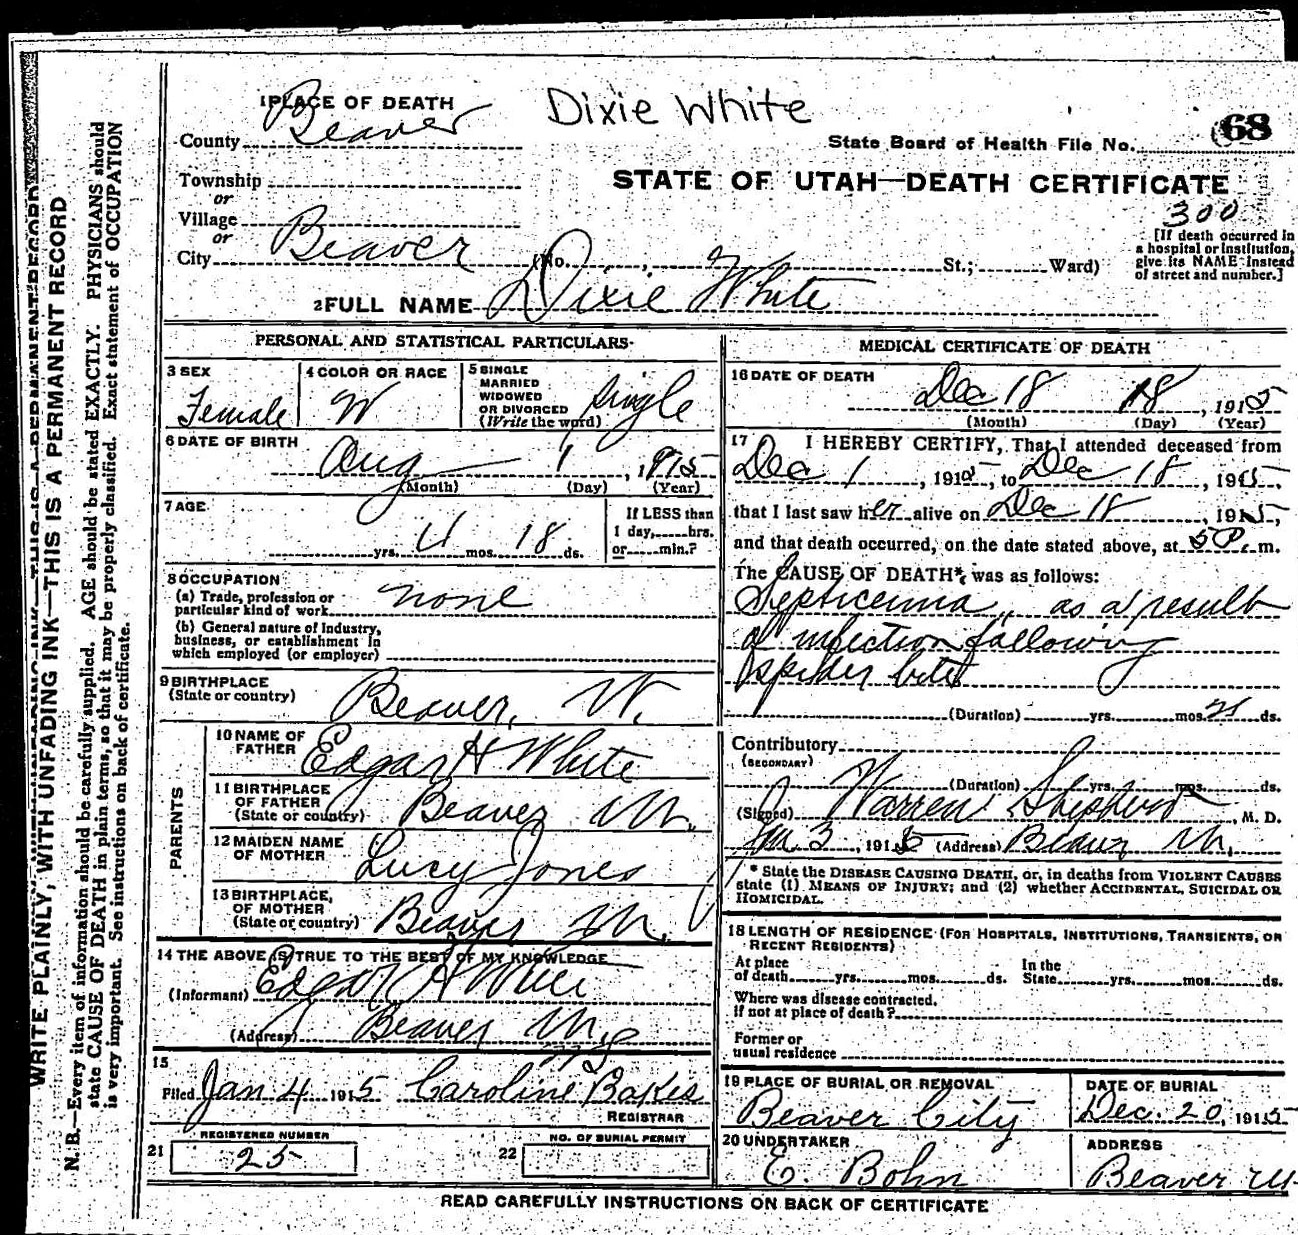 Dixie White
1 PLACE OF DEATH
County Beaver
State Board of Health File No. 68
Township
or
STATE OF UTAH—DEATH CERTIFICATE
300
Village
or
City Beaver (No. St.; Ward)
[If death occurred in a hospital or institution, give its NAME instead of street and number.]
2 FULL NAME Dixie White
PERSONAL AND STATISTICAL PARTICULARS
3 SEX Female
4 COLOR OR RACE W
5 SINGLE MARRIED WIDOWED OR DIVORCED (Write the word) Single
6 DATE OF BIRTH
Aug 1, 1915
(Month) (Day) (Year)
7 AGE
yrs. 4 mos. 18 ds.
If LESS than 1 day, hrs. or min.?
8 OCCUPATION
(a) Trade, profession or particular kind of work none
(b) General nature of industry, business, or establishment in which employed (or employer)
9 BIRTHPLACE (State or country) Beaver, U.
PARENTS
10 NAME OF FATHER Edgar H White
11 BIRTHPLACE OF FATHER (State or country) Beaver Ut.
12 MAIDEN NAME OF MOTHER Lucy Jones
13 BIRTHPLACE, OF MOTHER (State or country) Beaver Ut.
14 THE ABOVE IS TRUE TO THE BEST OF MY KNOWLEDGE
(Informant) Edgar H White
(Address) Beaver
15
Filed Jan 4 1915 Caroline Bakes
REGISTRAR
21 REGISTERED NUMBER 25
22 NO. OF BURIAL PERMIT
MEDICAL CERTIFICATE OF DEATH
16 DATE OF DEATH
Dec 18 18, 1915
(Month) (Day) (Year)
17 I HEREBY CERTIFY, That I attended deceased from
Dec 1, 1915, to Dec 18, 1915,
that I last saw her alive on Dec 18, 1915,
and that death occurred, on the date stated above, at 5 P. m.
The CAUSE OF DEATH* was as follows:
Septicemia, as a result
of infection following
spider bite
(Duration) yrs. mos. 21 ds.
Contributory
(SECONDARY)
(Duration) yrs. mos. ds.
(Signed) Warren Shepherd, M. D.
Jan 3, 1915 (Address) Beaver Ut.
* State the DISEASE CAUSING DEATH, or, in deaths from VIOLENT CAUSES state (1) MEANS OF INJURY; and (2) whether ACCIDENTAL, SUICIDAL OR HOMICIDAL.
18 LENGTH OF RESIDENCE (FOR HOSPITALS, INSTITUTIONS, TRANSIENTS, OR RECENT RESIDENTS)
At place of death yrs. mos. ds. In the State yrs. mos. ds.
Where was disease contracted, If not at place of death?
Former or usual residence
19 PLACE OF BURIAL OR REMOVAL
Beaver City
DATE OF BURIAL
Dec. 20, 1915
20 UNDERTAKER
E. Bohn
ADDRESS
Beaver Ut.
READ CAREFULLY INSTRUCTIONS ON BACK OF CERTIFICATE
WRITE PLAINLY, WITH UNFADING INK—THIS IS A PERMANENT RECORD
N. B.—Every item of information should be carefully supplied. AGE should be stated EXACTLY. PHYSICIANS should
state CAUSE OF DEATH in plain terms, so that it may be properly classified. Exact statement of OCCUPATION
is very important. See instructions on back of certificate.